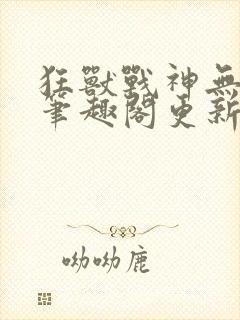 狂獸戰神無
筆趣閣更新
呦呦鹿